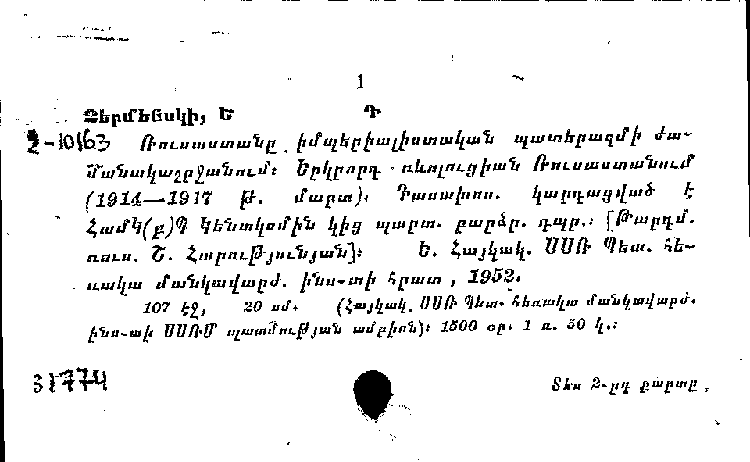 1
Չերմենսկի, Ե Դ
2-10163 Ռուսաստանը իմպերիալիստական պատերազմի ժա-
մանակաշրջանում։ Երկրորդ ռևոլուցիան Ռուսաստանում
(1914—1917 թ. մարտ)։ Դասախոս. կարդացված է
Համկ(բ)Պ Կենտկոմին կից պարտ. բարձր. դպր.։ [Թարգմ.
ռուս. Շ. Հարությունյան]։ Ե. Հայկակ. ՍՍՌ Պետ. հե-
ռակա մանկավարժ. ինս-տի հրատ, 1952.
107 էջ, 20 սմ. (Հայկակ. ՍՍՌ Պետ. հեռակա մանկավարժ.
ինս-տի ՍՍՌՄ պատմության ամբիոն)։ 1500 օր. 1 ռ. 50 կ.։
31774
Տես 2-րդ քարտը.